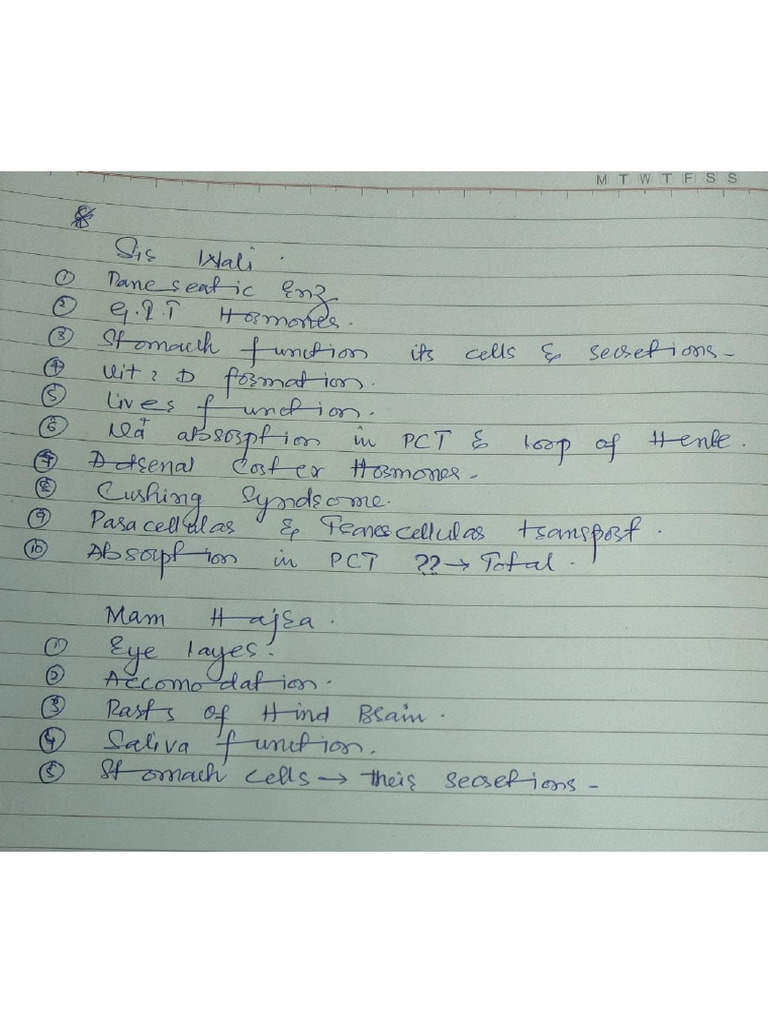 M T W T F S S
Sir Wali.
① Pancreatic Enz
② G.I.T Hormones.
③ Stomach function its cells & secretions -
④ Vit: D formation.
⑤ Liver function.
⑥ absorption in PCT & loop of Henle.
⑦ Adrenal Cortex Hormones -
⑧ Cushing Syndrome.
⑨ Paracellular & Transcellular transport.
⑩ Absorption in PCT ?? → Total.
Mam Hajra.
① Eye layer.
② Accomodation.
③ Parts of Hind Brain.
④ Saliva function.
⑤ Stomach cells → their secretions -